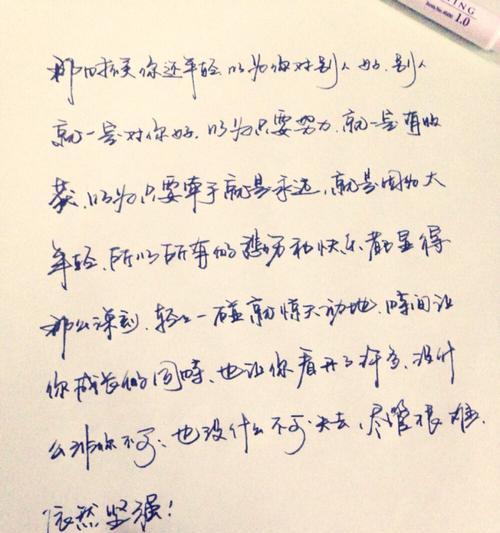 ING
1.0
那时候你还年轻.以为你对别人好.别人
就一定对你好.以为只要努力.就一定有收
获.以为只要牵手就是永远.就是因为太
年轻.所以所有的悲伤和快乐都显得
那么深刻.轻轻一碰就惊天动地.时间让
你成长的同时.也让你看开了许多.没什
么非你不可.也没什么不可失去.尽管很难.
依然坚强!